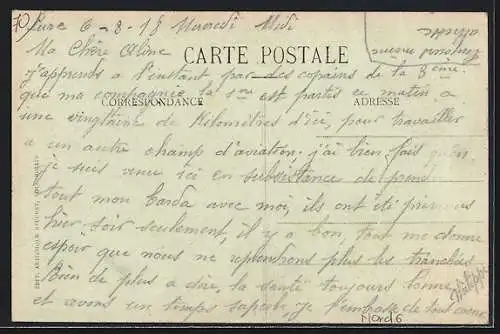 70) Lure 6-8-18 Mercredi Midi
Ma Chère Aline
CARTE POSTALE
J'apprends à l'instant par des copains de la 8ème
que ma compagnie la 1ère est partie ce matin à
CORRESPONDANCE
ADRESSE
une vingtaine de kilomètres d'ici, pour travailler
à un autre champ d'aviation. j'ai bien fait
je suis venu ici en subsistance de prendre
tout mon barda avec moi, ils ont été prévenus
hier soir seulement, il y a bon, tout me donne
espoir que nous ne reprendrons plus les tranchées
Rien de plus à dire, la santé toujours bonne
et avons un temps superbe, je t'embrasse de tout coeur
Philippe
Nord 6